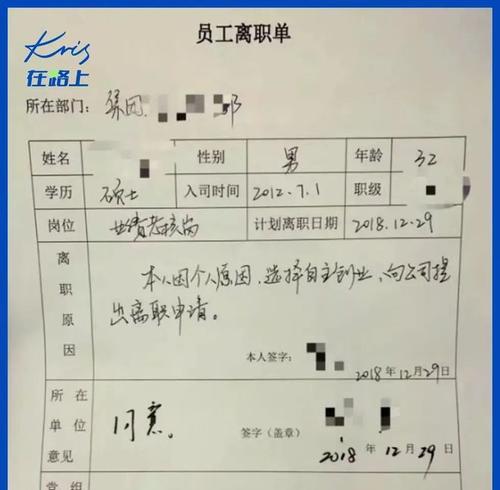 Kris
在路上
员工离职单
所在部门: 集团 部
姓名 性别 男 年龄 32
学历 硕士 入司时间 2012.7.1 职级
岗位 业绩考核岗 计划离职日期 2018.12.29
离职原因
本人因个人原因,选择自主创业,向公司提
出离职申请。
本人签字:
2018年12月29日
所在单位意见
同意。
签字(盖章)
2018年12月29日
党组